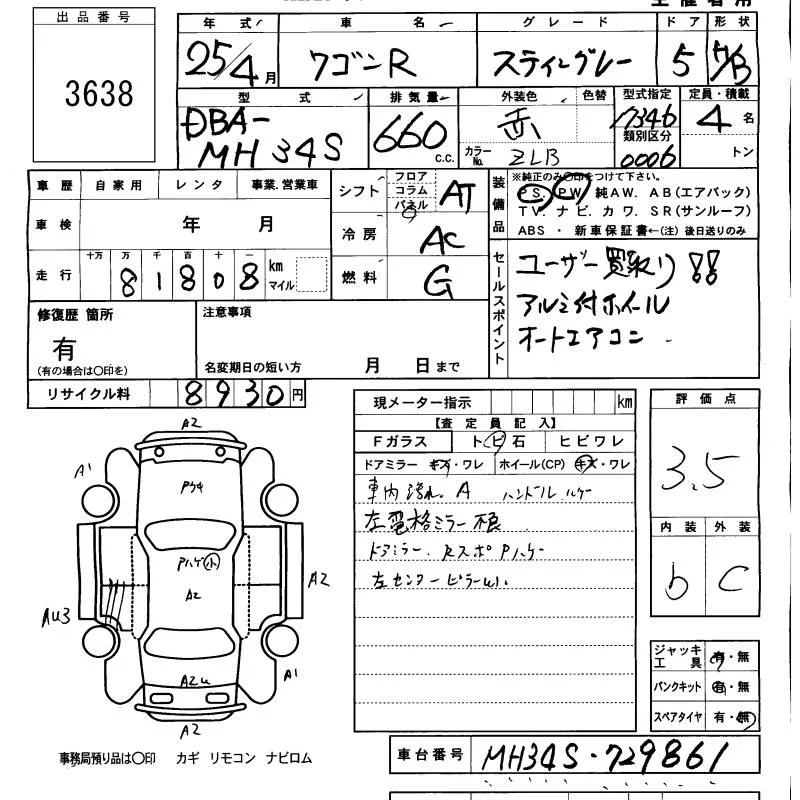 出品番号
3638
年式 車名 グレード ドア 形状
25/4月 ワゴンR スティングレー 5 5/B
型式 排気量 外装色 色替 型式指定 定員・積載
DBA-MH34S 660 C.C. 赤 17346 4名
カラーNo. ZLB 類別区分 0006 トン
車歴 自家用 レンタ 事業.営業車
車検 年 月
走行 十万 万 千 百 十 一 km マイル
81808
シフト フロア コラム パネル AT
冷房 AC
燃料 G
装備品
※純正のみ〇印をつけて下さい。
PS. PW. 純AW. AB(エアバック)
TV. ナビ. カワ. SR(サンルーフ)
ABS ・ 新車保証書←(注) 後日送りのみ
セールスポイント
ユーザー買取り!!
アルミ付ホイール
オートエアコン
修復歴 箇所
有
(有の場合は〇印を)
注意事項
名変期日の短い方 月 日まで
リサイクル料 8930円
現メーター指示 km
【査定員記入】
Fガラス トビ石 ヒビワレ
ドアミラー キズ・ワレ ホイール(CP) キズ・ワレ
車内汚れ. A ハンドル ハゲー
左電格ミラー不良
ドアミラー. Rスポ Pハゲー
左センターピラーW.
評価点
3.5
内装 外装
b C
A2
A1
Pハゲ(小)
A2
A2
AU3
A2u
A1
A2
ジャッキ工具 有・無
パンクキット 有・無
スペアタイヤ 有・無
事務局預り品は〇印 カギ リモコン ナビロム
車台番号 MH34S-729861